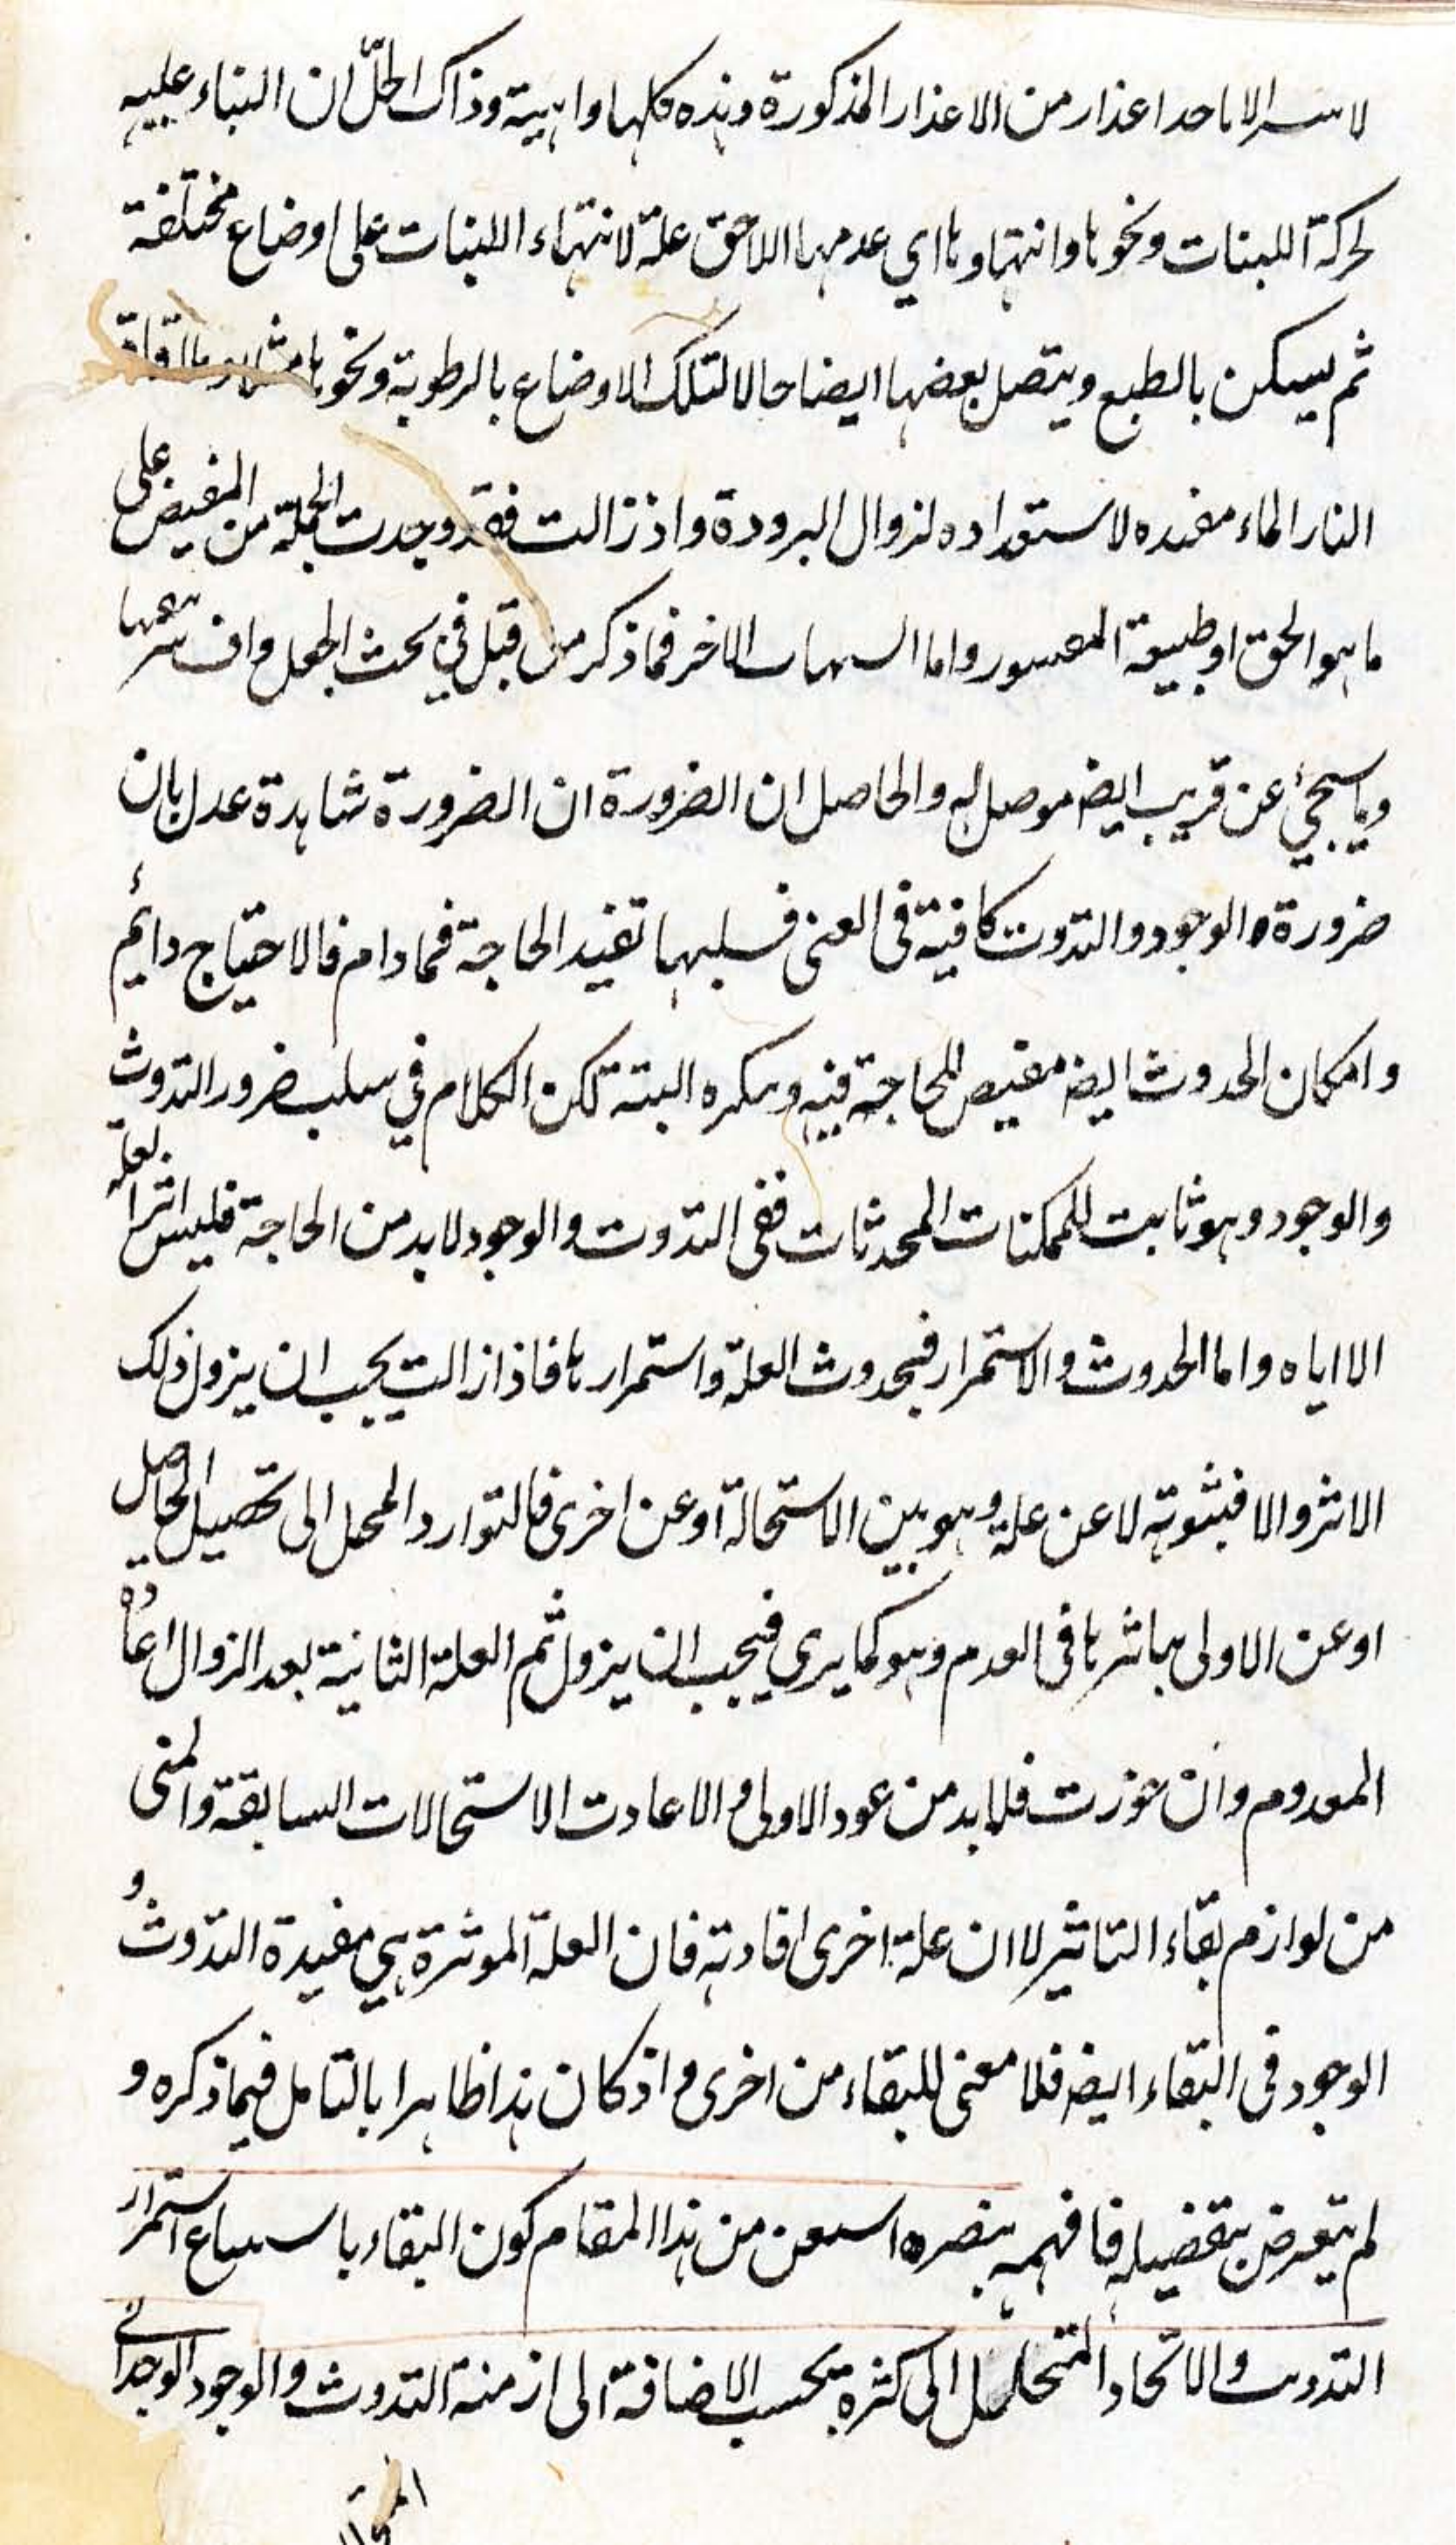 الا باحد اعذار من الاعذار المذكورة وهذه كلها واهية وذاك الحل ان البناء عليه
لحركة اللبنات ونحوها وانتهاوها اي عدمها اللاحق علة لانتهاء اللبنات على اوضاع مختلفة
ثم يسكن بالطبع ويتصل بعضها ايضا حالا لتلك الاوضاع بالرطوبة ونحوها
النار الماء مفيده لاستعداده لزوال البرودة واذ زالت فقد وجدت الجملة من المفيض على
ما هو الحق او طبيعة المعسور واما الاخر فما ذكر من قبل في بحث الجعل واف
وما سيجئ عن قريب ايضر موصل له والحاصل ان الضرورة ان الضرورة شاهدة عدل بان
ضرورة الوجود والتذوت كافية فى الغنى فسلبها تفيد الحاجة فما دام فالاحتياج دائم
وامكان الحدوث ايضر مفيض للحاجة فيه البتة لكن الكلام في سلب ضرور التذوث
والوجود وهو ثابت للممكنات المحدثات ففى التذوت والوجود لابد من الحاجة فليس اثرا لعله
الا اياه واما الحدوث والاستمرار فبحدوث العلة واستمرارها فاذا زالت يجب ان يزول ذلك
الاثر والا فثبوته لا عن علة وهو بين الاستحالة او عن اخرى فالتوارد المحل الى تحصيل الحاصل
او عن الاولى بتاثيرها فى العدم وهو كما يرى فيجب ان يزول ثم العلة الثانية بعد الزوال اعاده
المعدوم وان جوزت فلابد من عود الاولى والا عادت الاستحالات السابقة والمنى
من لوازم بقاء التاثير لا ان علة اخرى افادته فان العلة الموثرة هي مفيدة التذوث و
الوجود فى البقاء ايضر فلا معنى للبقاء من اخرى واذ كان هذا ظاهرا بالتامل فيما ذكره و
لم يتعرض بتفصيله فافهمه من هذا المقام كون البقاء استمرار
التذوت والاتحاد المتحلل الى كثرة بحسب الاضافة الى ازمنة التذوث والوجود الوحدانى